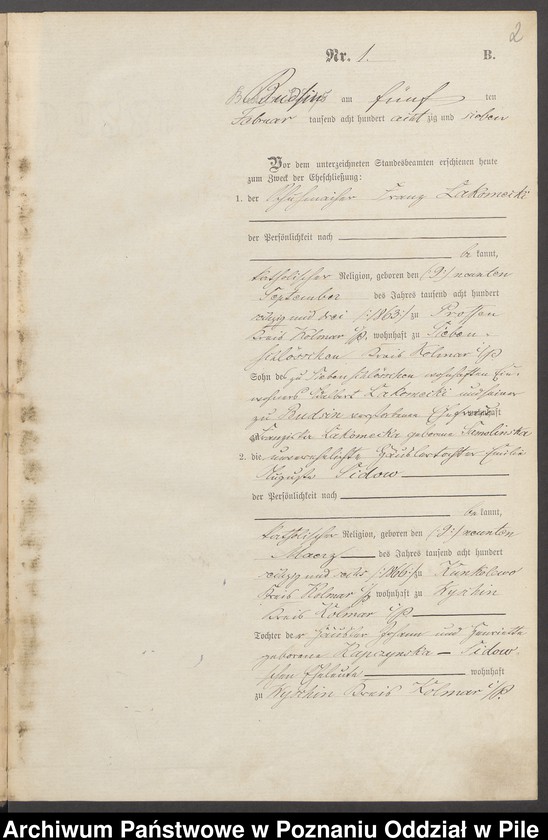 2
Nr. 1. B.
Budsin am fünf ten
Februar tausend acht hundert acht zig und sieben
Vor dem unterzeichneten Standesbeamten erschienen heute
zum Zweck der Eheschließung:
1. der Schuhmacher Franz Lakomecki
der Persönlichkeit nach
be kannt,
katholischer Religion, geboren den (:9:) neunten
September des Jahres tausend acht hundert
sechzig und drei /:1863:/ zu Prossen
Kreis Kolmar i/P. wohnhaft zu Sieben-
schlösschen Kreis Kolmar i/P
Sohn des zu Siebenschlösschen wohnhaften Ein-
wohners Lakomecki und seiner
zu Budsin verstorbenen Ehefrau wohnhaft
zu Lakomecka geborene Semolinska
2. die unverehelichte Häuslertochter Emilie
Auguste Sidow
der Persönlichkeit nach
be kannt,
katholischer Religion, geboren den (:9:) neunten
Maerz des Jahres tausend acht hundert
sechzig und sechs /:1866:/ zu Kunkolewo
Kreis Kolmar i/P wohnhaft zu Wyschin
Kreis Kolmar i/P
Tochter der Häusler Johann und Henriette
geborene Kapczynska – Sidow-
schen Eheleute wohnhaft
zu Wyschin Kreis Kolmar i/P.
Archiwum Państwowe w Poznaniu Oddział w Pile